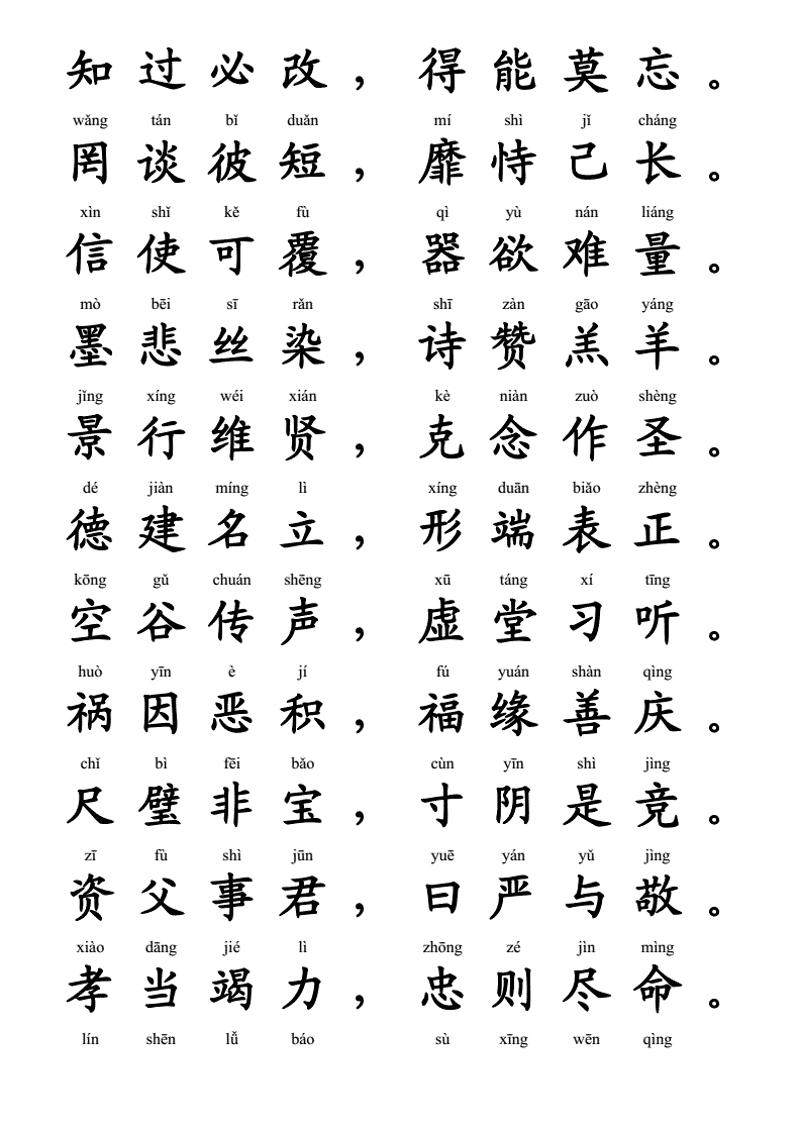 知过必改，得能莫忘。
wǎng tán bǐ duǎn mí shì jǐ cháng
罔谈彼短，靡恃己长。
xìn shǐ kě fù qì yù nán liáng
信使可覆，器欲难量。
mò bēi sī rǎn shī zàn gāo yáng
墨悲丝染，诗赞羔羊。
jǐng xíng wéi xián kè niàn zuò shèng
景行维贤，克念作圣。
dé jiàn míng lì xíng duān biǎo zhèng
德建名立，形端表正。
kōng gǔ chuán shēng xū táng xí tīng
空谷传声，虚堂习听。
huò yīn è jí fú yuán shàn qìng
祸因恶积，福缘善庆。
chǐ bì fēi bǎo cùn yīn shì jìng
尺璧非宝，寸阴是竞。
zī fù shì jūn yuē yán yǔ jìng
资父事君，曰严与敬。
xiào dāng jié lì zhōng zé jìn mìng
孝当竭力，忠则尽命。
lín shēn lǚ báo sù xīng wēn qìng